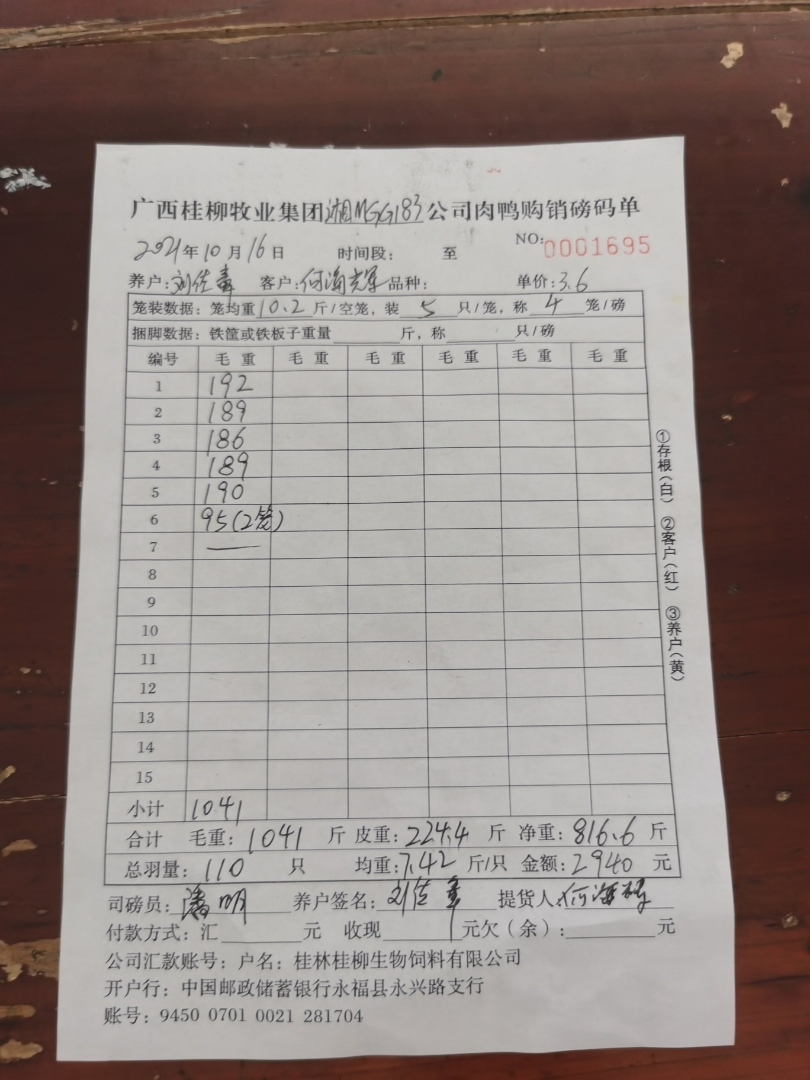 广西桂柳牧业集团湘MGG183公司肉鸭购销磅码单
2021年10月16日 时间段: 至 NO:0001695
养户:刘佐 客户:何海 品种: 单价:3.6
笼装数据: 笼均重10.2斤/空笼, 装5只/笼, 称4笼/磅
捆脚数据: 铁筐或铁板子重量 斤, 称 只/磅
编号 毛重 毛重 毛重 毛重 毛重 毛重
1 192
2 189
3 186
4 189
5 190
6 95(2笼)
7 —
8
9
10
11
12
13
14
15
小计 1041
合计 毛重:1041斤 皮重:224.4斤 净重:816.6斤
总羽量:110只 均重:7.42斤/只 金额:2940元
司磅员:潘明 养户签名:刘佐 提货人:何海
付款方式: 汇 元 收现 元欠(余): 元
公司汇款账号: 户名: 桂林桂柳生物饲料有限公司
开户行: 中国邮政储蓄银行永福县永兴路支行
账号: 9450 0701 0021 281704
①存根(白) ②客户(红) ③养户(黄)